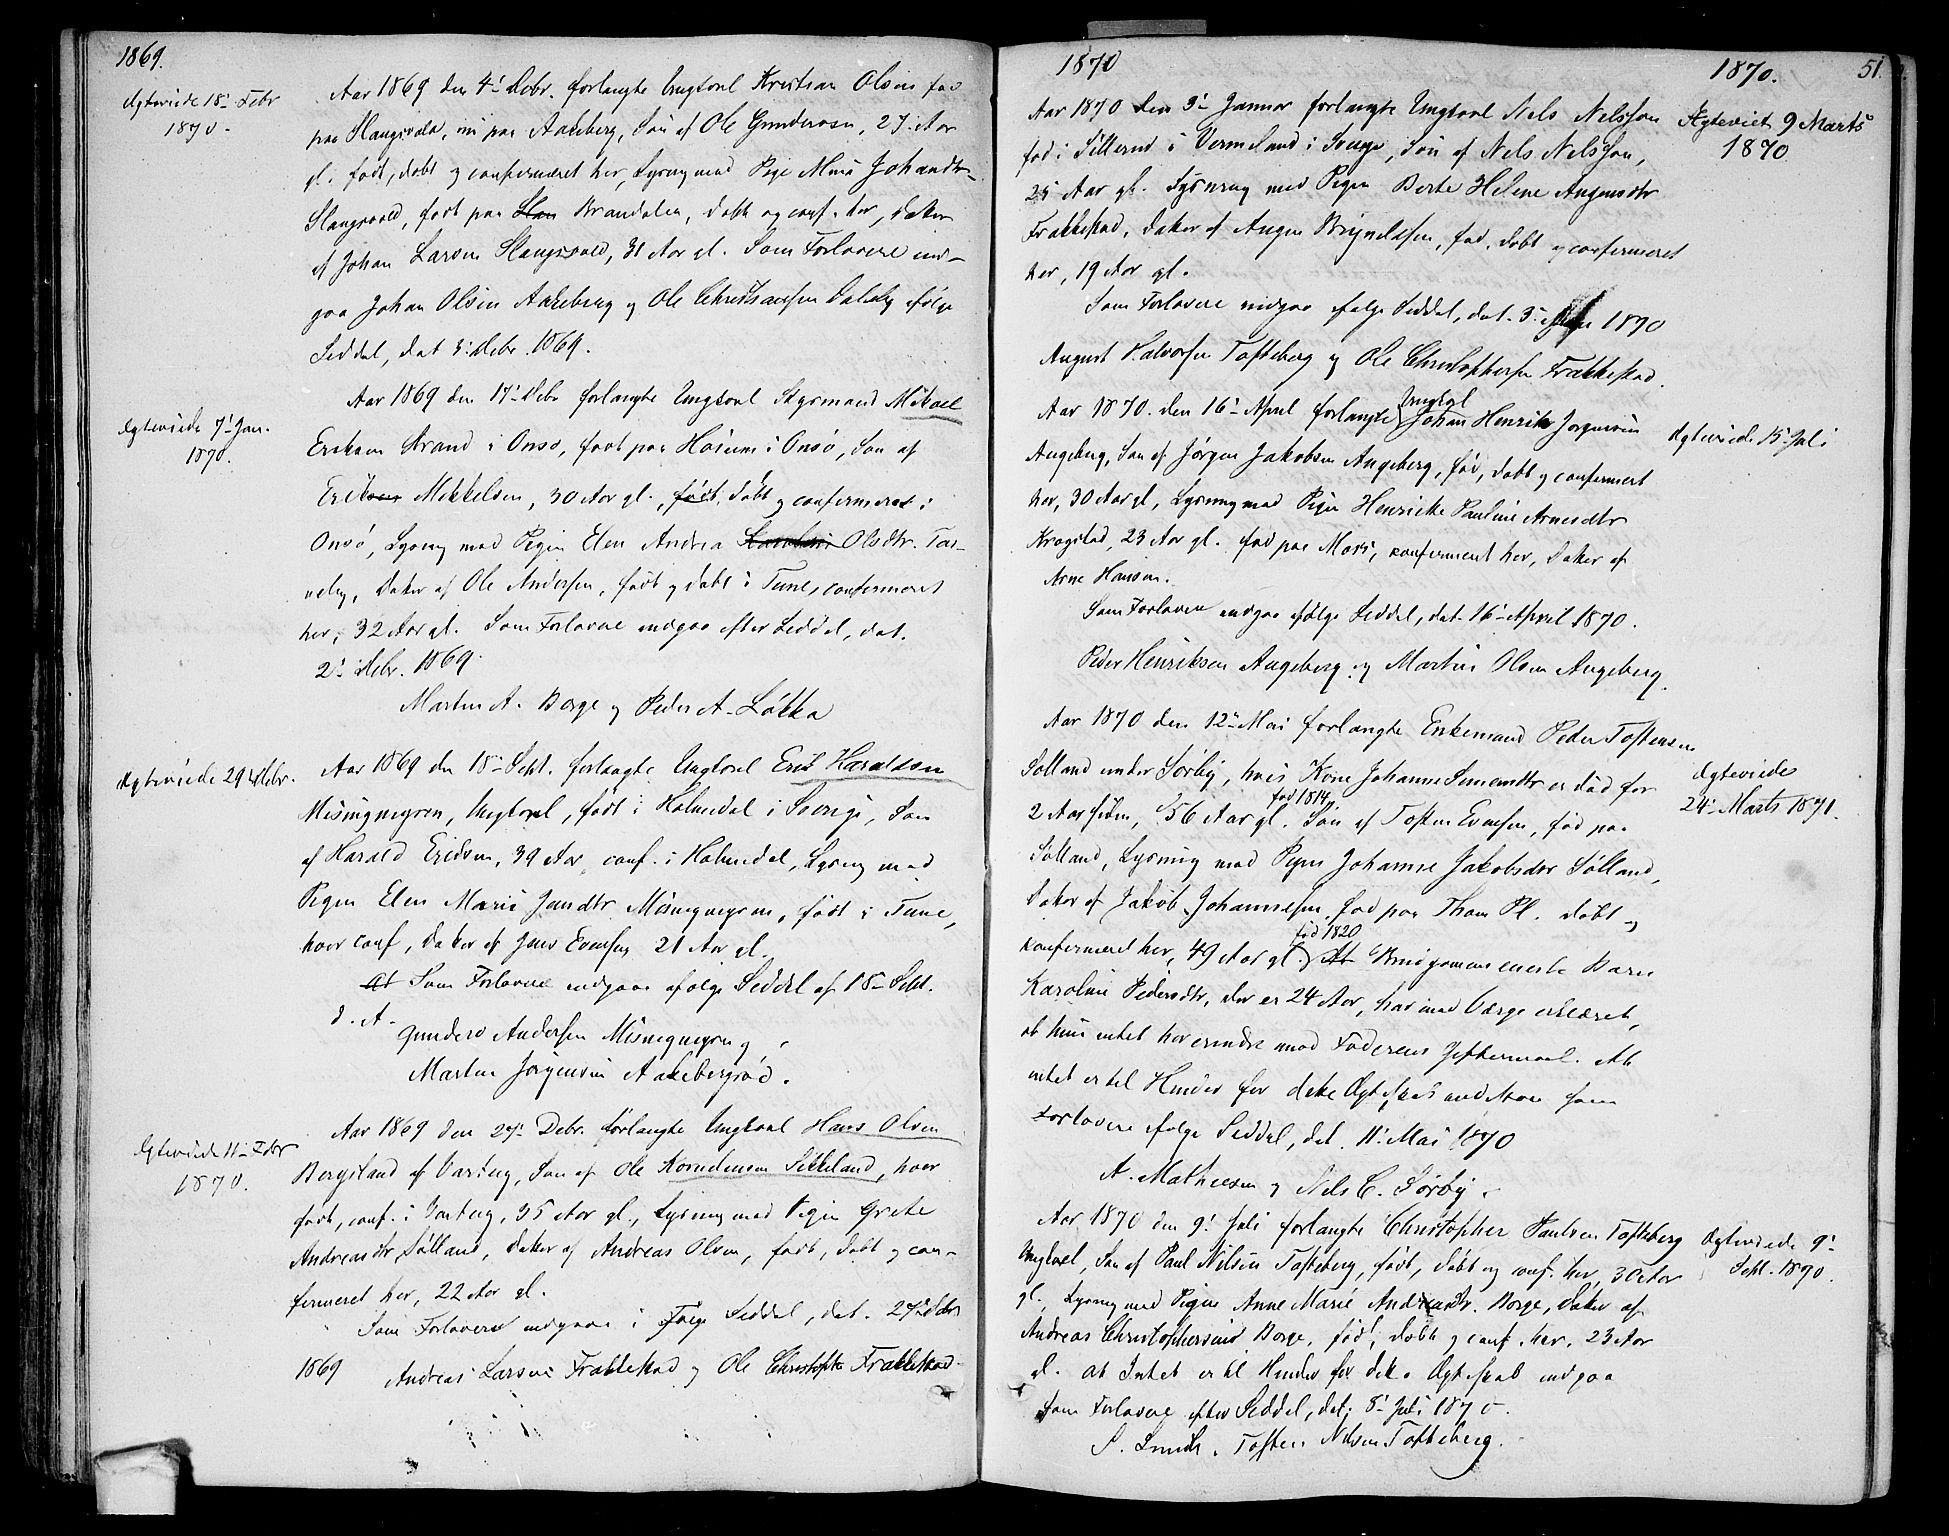 1869.
Ægteviede 18' Febr
1870.
Aar 1869 den 4' Debr. forlangte Ungkarl Kristian Olsen fød
paa Slangsvold, nu paa Aakeberg, Søn af Ole Gundersen, 27 Aar
gl. født, døbt og confirmeret her, Lysning med Pige Mina Johansdtr
Slangsvold, født paa Slan Brandalen, døbt og conf. her, Datter
af Johan Larsen Slangsvold, 31 Aar gl. Som Forlovere ind-
gaa Johan Olsen Aakeberg og Ole Christiansen Daleby ifølge
Seddel, dat 3' Debr. 1869.
Ægteviede 7' Jan.
1870.
Aar 1869 den 17' Debr forlangte Ungkarl Styrmand Mikael
Eriksen Strand i Onsø, født paa i Onsø, Søn af
Erik Mikkelsen, 30 Aar gl., født, døbt og confirmeret i
Onsø, Lysning med Pigen Elen Andrea Olsdtr. Tor-
neby, Datter af Ole Andersen, født og døbt i Tune, confirmeret
her, 32 Aar gl. Som Forlovere indgaa efter Seddel, dat.
2' Debr. 1869.
Martin A. Borge og Peder A. Løkka
Ægteviede 29 Debr.
Aar 1869 den 18' Sept. forlangte Ungkarl Erik Haraldsen
Misingmyren, Ungkarl, født i Holmedal i Sverige, Søn
af Harald Eriksen, 39 Aar, conf. i Holmedal, Lysning med
Pigen Elen Marie Jensdtr Misingmyren, født i Tune,
hvor conf, Datter af Jens Evensen 21 Aar gl.
at Som Forlovere indgaa ifølge Seddel af 18' Sept.
d. A.
Gunders Andersen Misingmyr og
Martin Jørgensen Aakebergrød.
Ægteviede 11' Febr
1870.
Aar 1869 den 27' Debr. forlangte Ungkarl Hans Olsen
Bergsland af Varteig, Søn af Ole Sikkeland, hvor
født, conf. i Varteig, 35 Aar gl., Lysning med Pigen Grete
Andreasdtr Sølland, Datter af Andreas Olsen, født, døbt og con-
firmeret her, 22 Aar gl.
Som Forlovere indgaa i Følge Seddel, dat. 27' Debr
1869 Andreas Larsen Frakkestad og Ole Christoph Frakkestad
1870
1870.
51.
Aar 1870 den 3' Januar forlangte Ungkarl Nels Nelsson
fød i Sillerud i Vermeland i Sverige, Søn af Nels Nelsson,
25 Aar gl. Lysning med Pigen Berte Helene Augensdtr
Frakkestad, Datter af Augen Brynildsen, fød, døbt og confirmeret
her, 19 Aar gl.
Ægteviet 9 Marts
1870
Som Forlovere indgaa ifølge Seddel, dat. 3' 1870
August Halvorsen Tofteberg og Ole Christophersen Frakkestad.
Aar 1870. den 16' April forlangte Ungkl Johan Henrik Jørgensen
Augeberg, Søn af Jørgen Jakobsen Augeberg, fød, døbt og confirmert
her, 30 Aar gl, Lysning med Pigen Henrikke Pauline Arnesdtr
Krogstad, 23 Aar gl. fød paa Moss, confirmeret her, Datter af
Arne Hansen.
Ægteviede 15' Juli
Som Forlovere indgaa ifølge Seddel, dat. 16' April 1870.
Peder Henriksen Augeberg og Martin Olsen Augeberg.
Aar 1870 den 12' Mai forlangte Enkemand Peder Toftensen
Sølland under Sørby, hvis Kone Johanne Simensdtr er død for
2 Aar siden, 56 Aar gl. fød 1814, Søn af Toften Evensen, fød paa
Sølland, Lysning med Pigen Johanne Jakobsdtr Sølland,
Datter af Jakob Johannesen, fød paa Thom Pl. døbt og
confirmeret her, 49 Aar gl. fød 1820 At Brudgommens eneste Barn
Karoline Pedersdtr, der er 24 Aar, har med Værge erklæret,
at hun intet har erindre mod Faderens Giftermaal. At
intet er til Hinder for dette Ægteskab indestaa som
Forlovere ifølge Seddel, dat. 11' Mai 1870
A. Mathiesen og Nils C. Sørby.
Ægteviede
24' Marts 1871.
Aar 1870 den 9' Juli forlangte Christopher Paulsen Tofteberg
Ungkarl, Søn af Paul Nilsen Tofteberg, født, døbt og conf. her, 30 Aar
gl., Lysning med Pigen Anne Marie Andreasdtr. Borge, Datter af
Andreas Christophersen Borge, født, døbt og conf. her, 23 Aar
gl. at Intet er til Hinder for dette Ægteskab indgaa
som Forlovere efter Seddel, dat. 8' Juli 1870.
S. Toften Nilsen Tofteberg.
Ægteviede 9'
Sept. 1870.